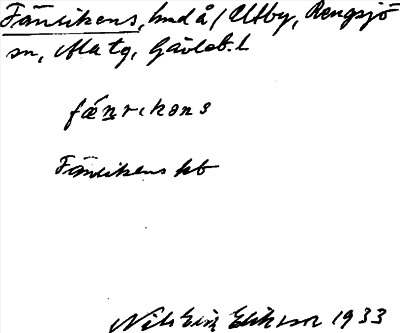 Fänrikens, hmd å / Ultby, Rengsjö
sn, Ala tg, Gävleb. l
fä́nrıkəns
Fänrikens hb
Nils Erik Eriksson 1933